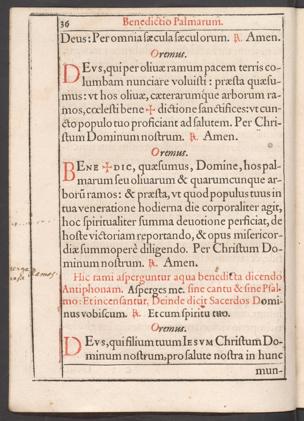 36 Benedictio Palmarum.
Deus: Per omnia sæcula sæculorum. ℟. Amen.
Oremus.
DEVS, qui per oliuæ ramum pacem terris co-
lumbam nunciare voluisti: præsta quæsu-
mus: vt hos oliuæ, cæterarumque arborum ra-
mos, cœlesti bene ✠ dictione sanctifices: vt cun-
cto populo tuo proficiant ad salutem. Per Chri-
stum Dominum nostrum. ℟. Amen.
Oremus.
BENE ✠ DIC, quæsumus, Domine, hos pal-
marum seu oliuarum & quarumcunque ar-
borū ramos: & præsta, vt quod populus tuus in
tua veneratione hodierna die corporaliter agit,
hoc spiritualiter summa deuotione perficiat, de
hoste victoriam reportando, & opus misericor-
diæ summoperè diligendo. Per Christum Do-
minum nostrum. ℟. Amen.
Hic rami asperguntur aqua benedicta dicendo
Antiphonam. Asperges me. sine cantu & sine Psal-
mo: Et incensantur. Deinde dicit Sacerdos Domi-
nus vobiscum. ℟. Et cum spiritu tuo.
Oremus.
DEVS, qui filium tuum IESVM Christum Do-
minum nostrum, pro salute nostra in hunc
mun-